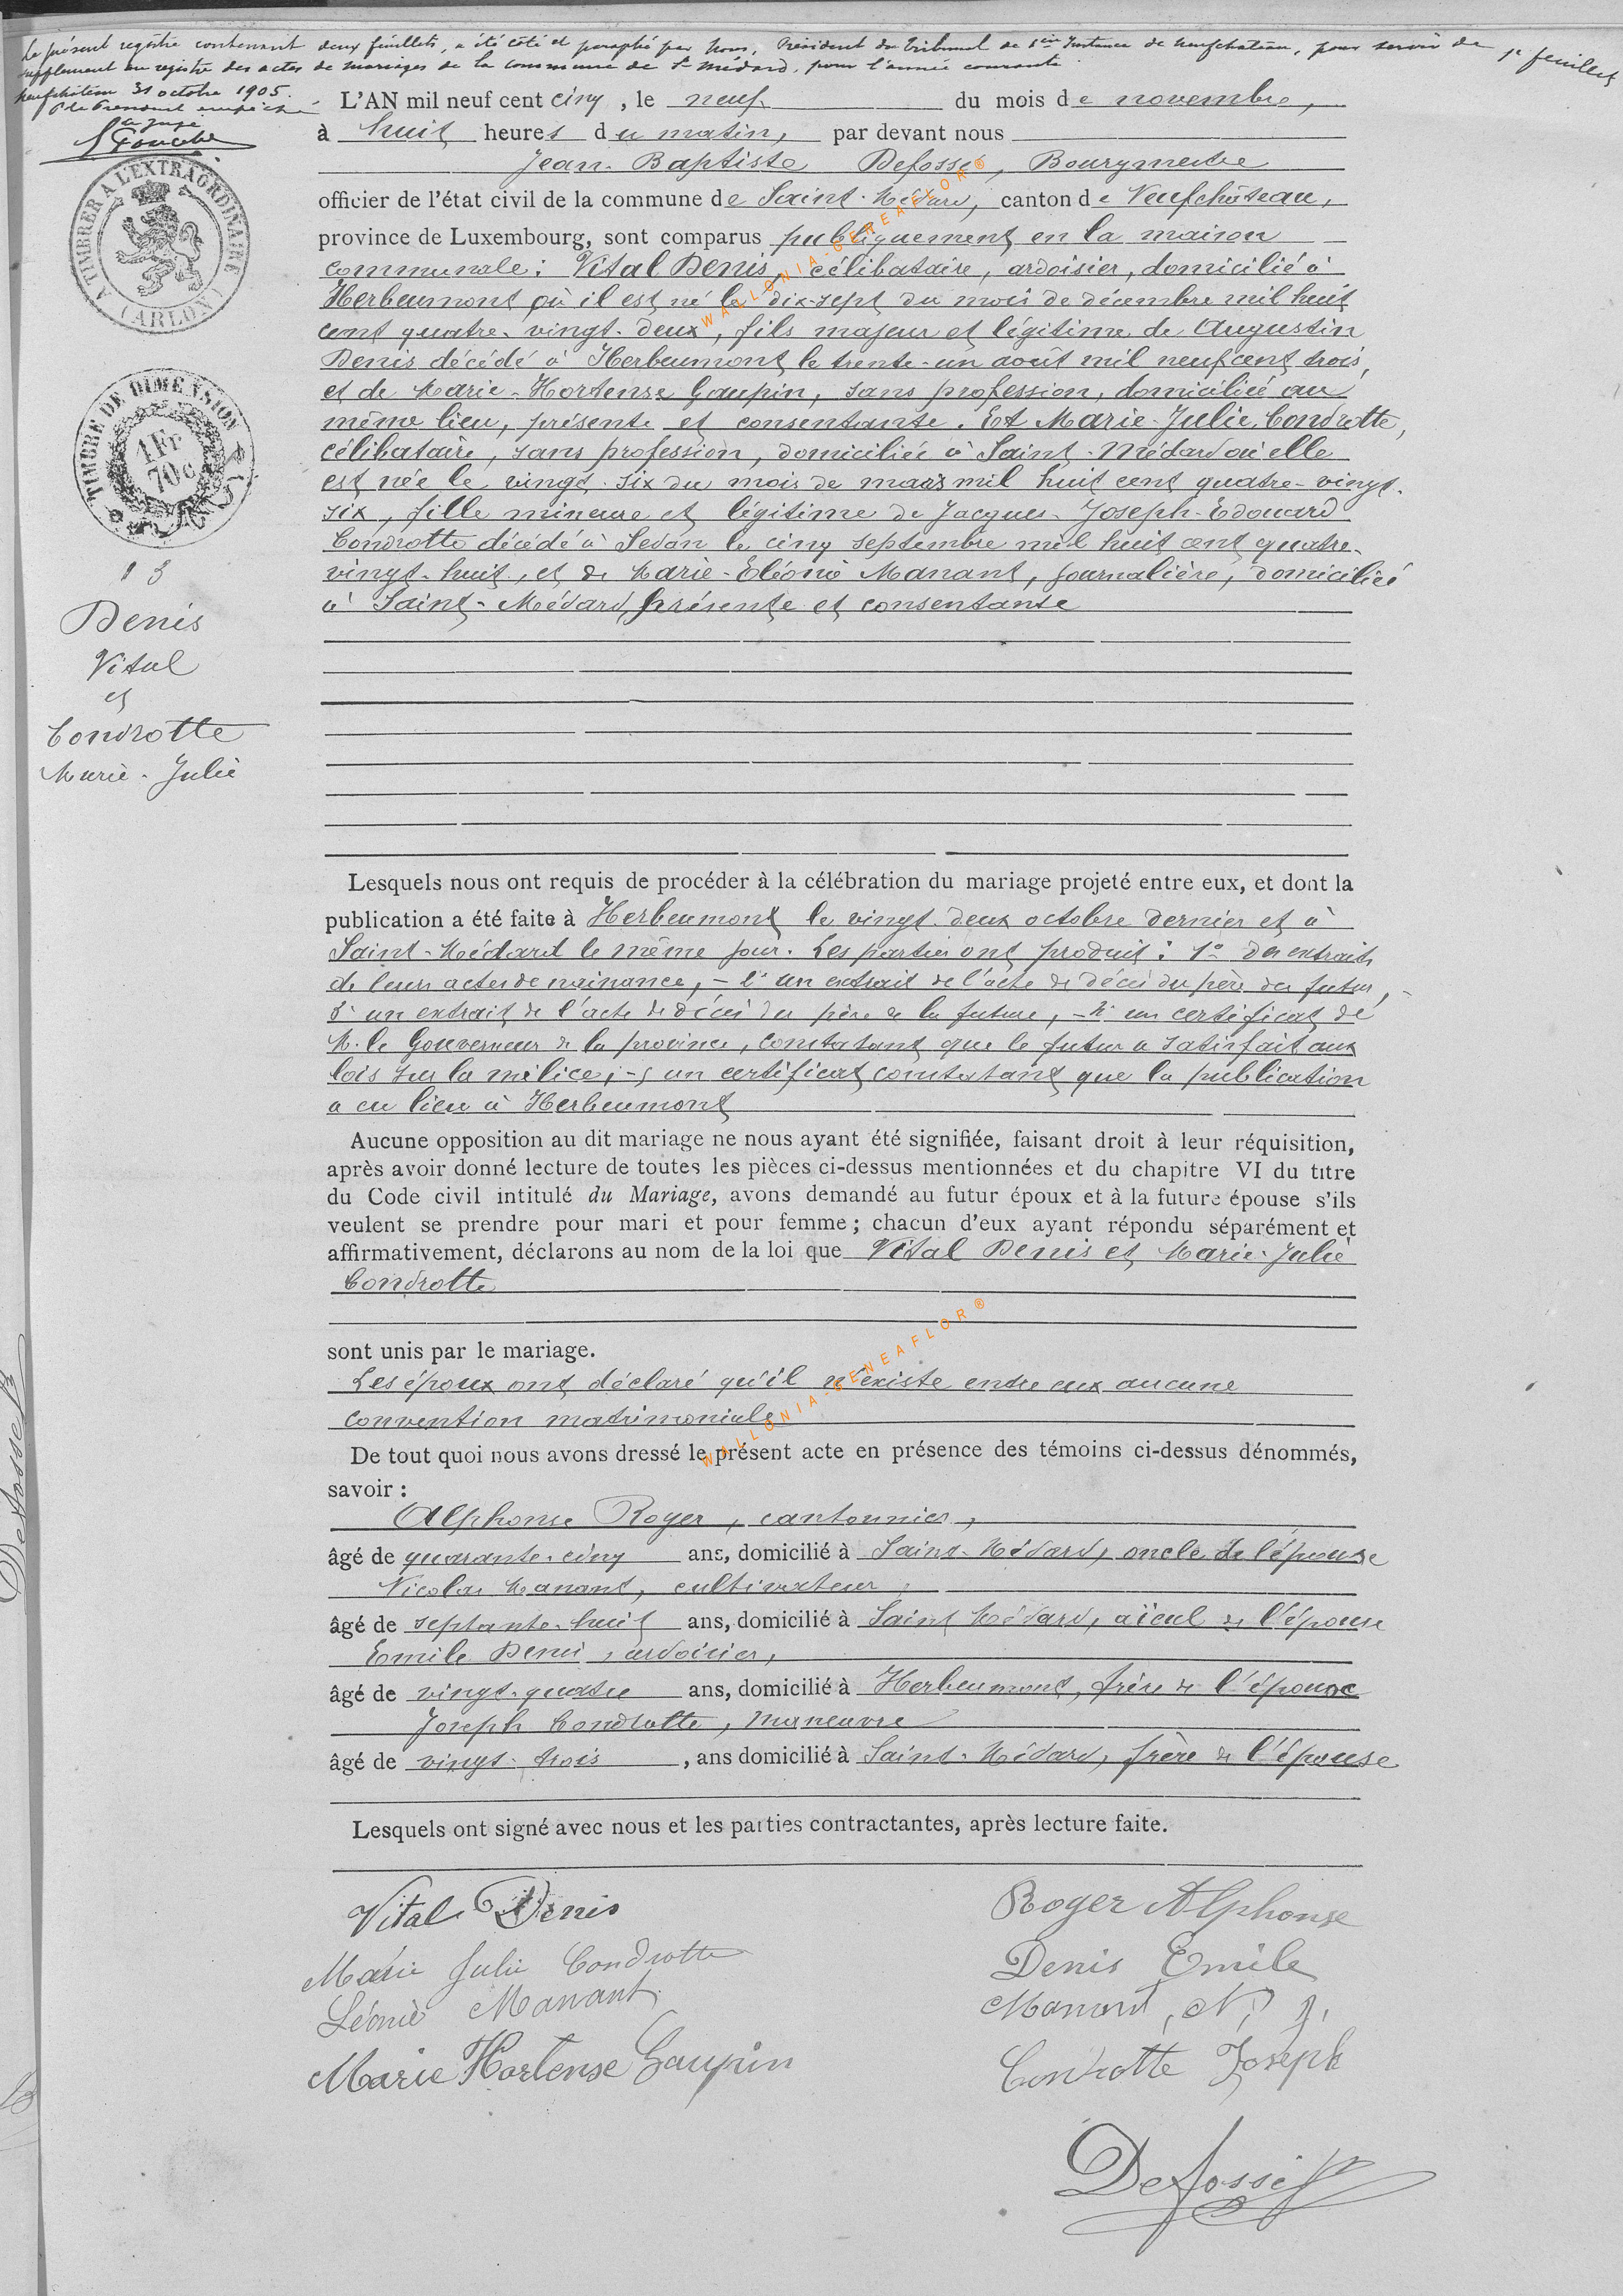 Le présent registre contenant deux feuillets, a été côté et paraphé par Nous, Président du Tribunal de 1ère Instance de Neufchâteau, pour servir de 1r feuillet
supplément au registre des actes de mariages de la commune de St Médard, pour l'année courante.
Neufchâteau 31 octobre 1905.
P. le Président empêché
Le juge
A TIMBRER A L'EXTRAORDINAIRE
(ARLON)
TIMBRE DE DIMENSION
1 Fr
70 c
13
Denis
Vital
et
Condrotte
Marie-Julie
L'AN mil neuf cent cinq, le neuf du mois de novembre,
à huit heures du matin, par devant nous
Jean-Baptiste Defossé, Bourgmestre
officier de l'état civil de la commune de Saint-Médard, canton de Neufchâteau,
province de Luxembourg, sont comparus publiquement en la maison
communale: Vital Denis, célibataire, ardoisier, domicilié à
Herbeumont où il est né le dix-sept du mois de décembre mil huit
cent quatre-vingt-deux, fils majeur et légitime de Augustin
Denis décédé à Herbeumont le trente-un août mil neuf cent trois,
et de Marie-Hortense Gaupin, sans profession, domiciliée au
même lieu, présente et consentante. Et Marie-Julie Condrotte,
célibataire, sans profession, domiciliée à Saint-Médard où elle
est née le vingt-six du mois de mars mil huit cent quatre-vingt-
six, fille mineure et légitime de Jacques-Joseph-Edouard
Condrotte décédé à Sedan le cinq septembre mil huit cent quatre-
vingt-huit, et de Marie-Eléonie Manant, journalière, domiciliée
à Saint-Médard, présente et consentante
Lesquels nous ont requis de procéder à la célébration du mariage projeté entre eux, et dont la
publication a été faite à Herbeumont le vingt-deux octobre dernier et à
Saint-Médard le même jour. Les parties ont produit: 1° des extraits
de leurs actes de naissance, – 2° un extrait de l'acte de décès du père du futur,
3° un extrait de l'acte de décès du père de la future, – 4° un certificat de
M. le Gouverneur de la province, constatant que le futur a satisfait aux
lois sur la milice; – 5 un certificat constatant que la publication
a eu lieu à Herbeumont
Aucune opposition au dit mariage ne nous ayant été signifiée, faisant droit à leur réquisition,
après avoir donné lecture de toutes les pièces ci-dessus mentionnées et du chapitre VI du titre
du Code civil intitulé du Mariage, avons demandé au futur époux et à la future épouse s'ils
veulent se prendre pour mari et pour femme; chacun d'eux ayant répondu séparément et
affirmativement, déclarons au nom de la loi que Vital Denis et Marie-Julie
Condrotte
sont unis par le mariage.
Les époux ont déclaré qu'il n'existe entre eux aucune
convention matrimoniale
De tout quoi nous avons dressé le présent acte en présence des témoins ci-dessus dénommés,
savoir :
Alphonse Roger, cantonnier,
âgé de quarante-cinq ans, domicilié à Saint-Médard, oncle de l'épouse
Nicolas Manant, cultivateur,
âgé de septante-huit ans, domicilié à Saint Médard, aïeul de l'épouse
Emile Denis, ardoisier,
âgé de vingt-quatre ans, domicilié à Herbeumont, frère de l'épouse
Joseph Condrotte, manœuvre
âgé de vingt-trois , ans domicilié à Saint-Médard, frère de l'épouse
Lesquels ont signé avec nous et les parties contractantes, après lecture faite.
Vital Denis
Roger Alphonse
Marie Julie Condrotte
Denis Emile
Léonie Manant
Manant, N. J.
Marie Hortense Gaupin
Condrotte Joseph
Defossé
WALLONIA-GENEAFLOR®
WALLONIA-GENEAFLOR®